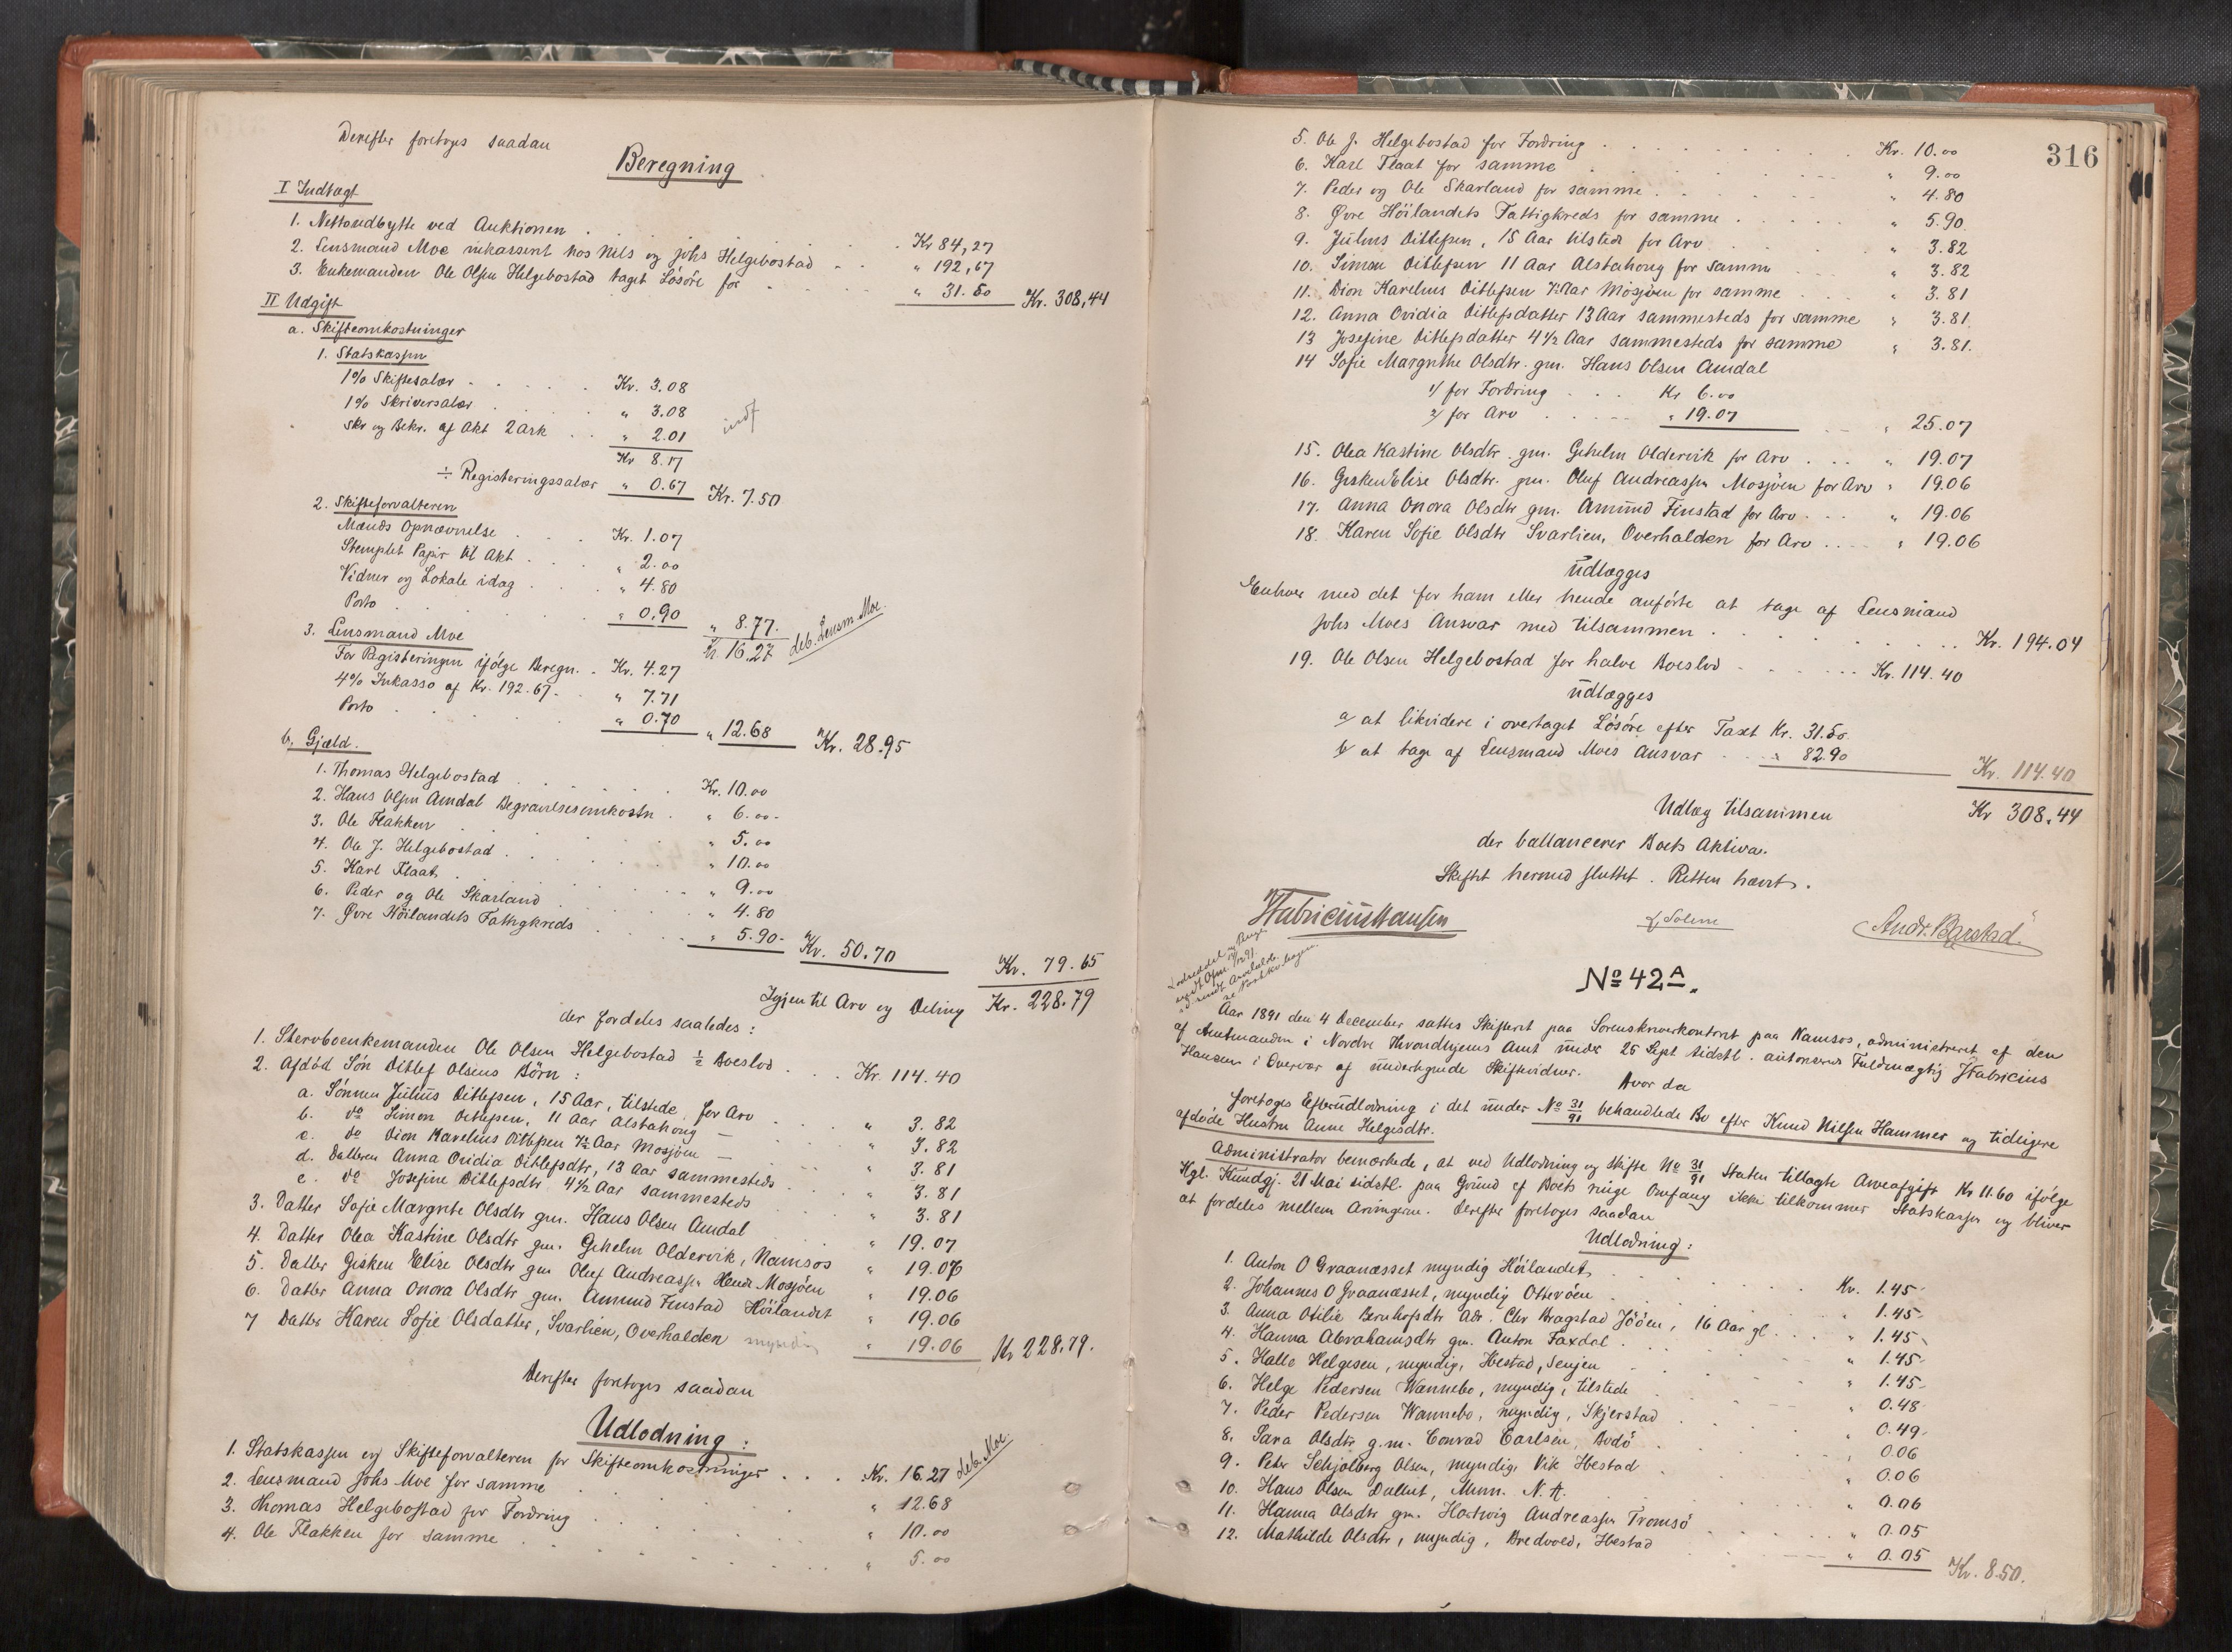 Derefter foretoges saadan
Beregning
I Indtægt
1. Nettoudbytte ved Auktionen . . Kr 84,27
2. Lensmand Moe inkasseret hos Nils og Johs Helgebostad . . " 192,67
3. Enkemanden Ole Olsen Helgebostad taget Lösöre for . . " 31.50 Kr. 308,44
II Udgift
a. Skifteomkostninger
1. Statskassen
1% Skiftesalær . . Kr. 3.08
1% Skriversalær . . " 3.08
Skr og Bekr. af Akt 2 Ark . . " 2.01
Kr 8.17
÷ Registeringssalær " 0.67 Kr. 7.50
2. Skifteforvalteren
Mænds Opnævnelse . . Kr. 1.07
Stemplet Papir til Akt . . " 2.00
Vidner og Lokale idag . . " 4.80
Porto . . " 0.90 " 8.77.
Kr. 16.27 deb. Lensm. Moe.
3. Lensmand Moe
For Registeringen ifölge Beregn. . Kr. 4.27
4% Inkasso af Kr. 192.67. " 7.71
Porto . . " 0.70 " 12.68 Kr. 28.95
b. Gjæld.
1. Thomas Helgebostad . . Kr. 10.00
2. Hans Olsen Amdal Begravelsesomkostn . " 6.00
3. Ole Flakken . . " 5.00
4. Ole J. Helgebostad . . " 10.00
5. Karl Flaat . . " 9.00
6. Peder og Ole Skarland . . " 4.80
7. Øvre Höilandets Fattigkreds . . " 5.90 Kr. 50.70 Kr. 79.65
Igjen til Arv og Deling Kr. 228.79
der fordeles saaledes:
1. Stervboenkemanden Ole Olsen Helgebostad ½ Boeslod . . Kr. 114.40
2. Afdöd Sön Ditlef Olsens Börn:
a. Sönnen Julius Ditlefsen, 15 Aar, tilstede, for Arv " 3.82
b. do Simon Ditlefsen, 11 Aar Alstahoug — " 3.82
c. do Dion Karelius Ditlefsen 7½ Aar Mosjöen — " 3.81
d. Datteren Anna Ovidia Ditlefsdtr, 13 Aar sammesteds " 3.81
e. do Josefine Ditlefsdtr 4½ Aar sammesteds " 3.81
3. Datter Sofie Margrete Olsdtr gm. Hans Olsen Amdal " 19.07
4. Datter Olea Kastine Olsdtr gm. Gehelm Oldervik, Namsos " 19.07
5. Datter Gisken Elise Olsdtr gm Oluf Andreassen Mosjöen " 19.06
6. Datter Anna Onora Olsdtr gm. Amund Finstad Höilandet " 19.06
7 Datter Karen Sofie Olsdatter, Svarlien, Overhalden myndig " 19.06 Kr 228.79.
Derefter foretoges saadan
Udlodning:
1. Statskassen og Skifteforvalteren for Skifteomkostninger . . . Kr. 16.27 deb. Moe.
2. Lensmand Johs Moe for samme . . " 12.68
3. Thomas Helgebostad for Fordring . . " 10.00
4. Ole Flakken for samme . . " 5.00
316
5. Ole J. Helgebostad for Fordring . . Kr. 10.00
6. Karl Flaat for samme . . " 9.00
7. Peder og Ole Skarland for samme . . " 4.80
8. Øvre Höilandets Fattigkreds for samme . . " 5.90
9. Julius Ditlefsen, 15 Aar tilstede for Arv . . " 3.82
10. Simon Ditlefsen 11 Aar Alstahoug for samme . . " 3.82
11. Dion Karelius Ditlefsen 7½ Aar Mosjöen for samme . . " 3.81
12. Anna Ovidia Ditlefsdatter 13 Aar sammesteds for samme " 3.81.
13 Josefine Ditlefsdatter 4½ Aar sammesteds for samme " 3.81.
14 Sofie Margrethe Olsdtr. gm. Hans Olsen Amdal
1/ for Fordring . . . Kr 6.00
2/ for Arv . . . " 19.07 . . " 25.07
15. Olea Kastine Olsdtr. gm. Gehelm Oldervik for Arv . . . " 19.07
16. Gisken Elise Olsdtr. gm. Oluf Andreassen Mosjöen for Arv " 19.06
17. Anna Onora Olsdtr gm. Amund Finstad for Arv . . . " 19.06
18. Karen Sofie Olsdtr Svarlien, Overhalden for Arv . . . " 19.06
udlægges
Enhver med det for ham eller hende anförte at tage af Lensmand
Johs Moes Ansvar med tilsammen . . Kr. 194.04
19. Ole Olsen Helgebostad for halve Boeslod . . Kr. 114.40
udlægges
a/ at likvidere i overtaget Lösöre efter Taxt Kr. 31.50
b/ at tage af Lensmand Moes Ansvar . . " 82.90 Kr. 114.40
Udlæg tilsammen Kr 308.44
der ballancerer Boets Aktiva.
Skiftet hermed sluttet. Retten hævet.
JFabriciusHansen
L. Solem
Andr. Barstad.
No 42 A.
Aar 1891 den 4 December sattes Skifteret paa Sorenskriverkontoret paa Namsos, administreret af den
af Amtmanden i Nordre Throndhjems Amt under 25 Sept sidstl. autoriserede Fuldmægtig JFabricius
Hansen i Overvær af undertegnede Skiftevidner.
Hvor da
foretoges Efterudlodning i det under No 31/91 behandlede Bo efter Knud Nilsen Hammer og tidligere
afdöde Hustru Anne Helgesdtr.
Administrator bemærkede, at ved Udlodning og Skifte No 31/91 Staten tillagte Arveafgift Kr 11.60 ifölge
Kgl. Kundgj. 21 Mai sidstl. paa Grund af Boets ringe Omfang ikke tilkommer Statskassen og bliver
at fordeles mellem Arvingerne. Derefter foretoges saadan
Udlodning:
1. Anton O Graanæsset myndig Höilandet . . Kr. 1.45
2. Johannes O Graanæsset, myndig Otteröen . . " 1.45
3. Anna Otilie Bernhofsdtr Adr. Chr Bragstad Jööen, 16 Aar gl . . " 1.45
4. Hanna Abrahamsdtr gm. Anton Faxdal . . " 1.45
5. Halle Helgesen, myndig, Ibestad, Senjen . . " 1.45
6. Helge Pedersen Wannebo, myndig, tilstede . . " 0.48
7. Peder Pedersen Wannebo, myndig, Skjerstad . . " 0.49
8. Sara Olsdtr g.m. Conrad Carlsen, Bodö . . " 0.06
9. Peter Schjølberg Olsen, myndig, Vik Ibestad . . " 0.06
10. Hans Olsen Dullut, Minn. N. A. . . " 0.06
11. Hanna Olsdtr gm. Hartvig Andreassen Tromsö . . " 0.05
12. Mathilde Olsdtr, myndig, Bredvold, Ibestad . . " 0.05 Kr. 8.50.